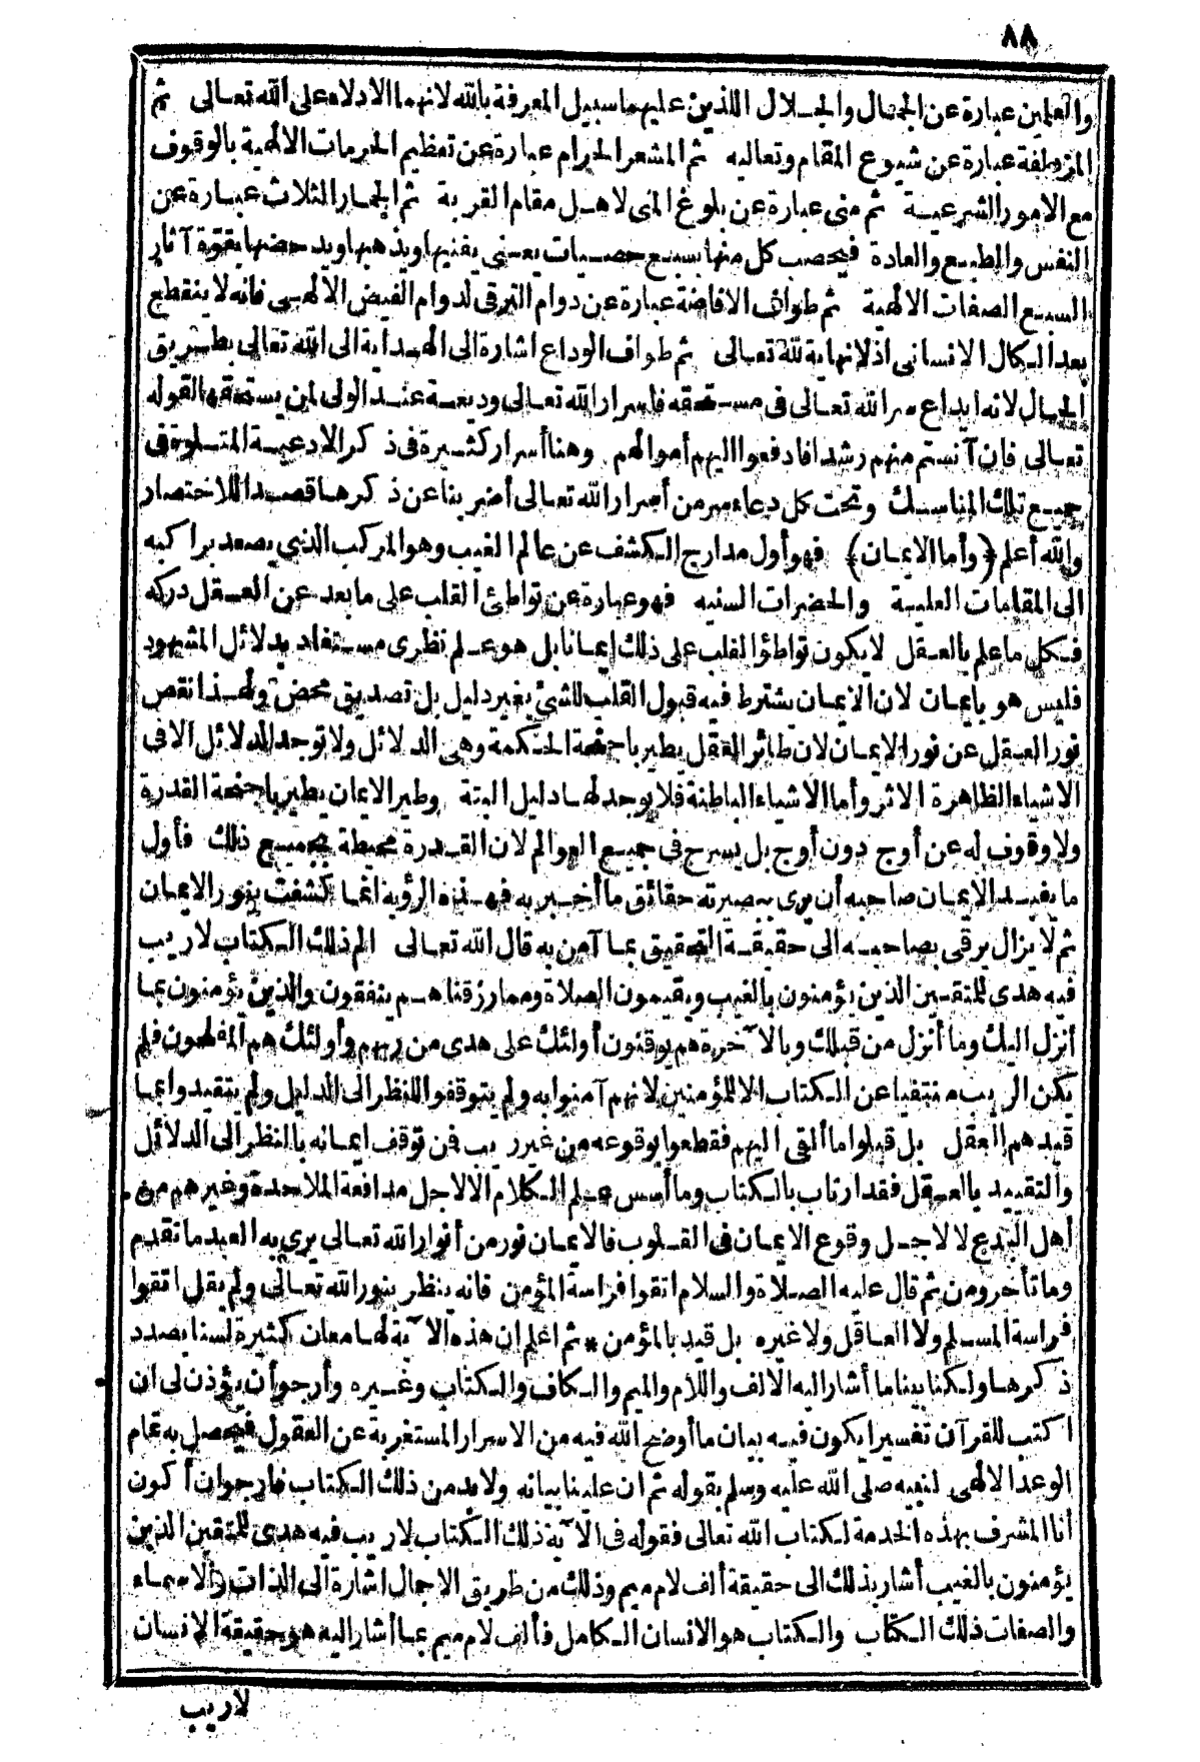 ٨٨
والعلمين عبارة عن الجمال والجلال اللذين عليهما سبيل المعرفة بالله لانهما الادلاء على الله تعالى ثم
المزدلفة عبارة عن شيوع المقام وتعاليه ثم المشعر الحرام عبارة عن تعظيم الحرمات الالهية بالوقوف
مع الامور الشرعية ثم منى عبارة عن بلوغ المنى لاهل مقام القربة ثم الجمار الثلاث عبارة عن
النفس والطبع والعادة فيحصب كل منها بسبع حصيات يعنى يفنيها ويذهبها ويدحضها بقوة آثار
السبع الصفات الالهية ثم طواف الافاضة عبارة عن دوام الترقى لدوام الفيض الالهى فانه لا ينقطع
بعد الكمال الانسانى اذ لا نهاية لله تعالى ثم طواف الوداع اشارة الى الهداية الى الله تعالى بطريق
الحال لانه ايداع سر الله تعالى فى مستحقه فاسرار الله تعالى وديعة عند الولى لمن يستحقها لقوله
تعالى فان آنستم منهم رشدا فادفعوا اليهم أموالهم وهنا أسرار كثيرة فى ذكر الادعية المتلوة فى
جميع تلك المناسك وتحت كل دعاء سر من أسرار الله تعالى أضربنا عن ذكرها قصدا للاختصار
والله أعلم ﴿وأما الايمان﴾ فهو أول مدارج الكشف عن عالم الغيب وهو المركب الذى يصعد براكبه
الى المقامات العلية والحضرات السنيه فهو عبارة عن تواطئ القلب على ما بعد عن العقل دركه
فكل ما علم بالعقل لا يكون تواطؤ القلب على ذلك ايمانا بل هو علم نظرى مستفاد بدلائل المشهود
فليس هو بايمان لان الايمان يشترط فيه قبول القلب للشئ بغير دليل بل تصديق محض ولهذا نقص
نور العقل عن نور الايمان لان طائر العقل يطير باجنحة الحكمة وهى الدلائل ولا توجد الدلائل الا فى
الاشياء الظاهرة الاثر وأما الاشياء الباطنة فلا يوجد لها دليل البتة وطير الايمان يطير باجنحة القدرة
ولا وقوف له عن أوج دون أوج بل يسرح فى جميع العوالم لان القدرة محيطة بجميع ذلك فأول
ما يفيد الايمان صاحبه أن يرى ببصيرته حقائق ما أخبر به فهذه الرؤية انما كشفت بنور الايمان
ثم لا يزال يرقى بصاحبه الى حقيقة التحقيق بما آمن به قال الله تعالى الم ذلك الكتاب لا ريب
فيه هدى للمتقين الذين يؤمنون بالغيب ويقيمون الصلاة ومما رزقناهم ينفقون والذين يؤمنون بما
أنزل اليك وما أنزل من قبلك وبالآخرة هم يوقنون أولئك على هدى من ربهم وأولئك هم المفلحون فلم
يكن الريب منتفيا عن الكتاب الا للمؤمنين لانهم آمنوا به ولم يتوقفوا للنظر الى الدليل ولم يتقيدوا بما
قيدهم العقل بل قبلوا ما ألقى اليهم فقطعوا بوقوعه من غير ريب فمن توقف ايمانه بالنظر الى الدلائل
والتقييد بالعقل فقد ارتاب بالكتاب وما أسس علم الكلام الا لاجل مدافعة الملاحدة وغيرهم من
أهل البدع لا لاجل وقوع الايمان فى القلوب فالايمان نور من أنوار الله تعالى يرى به العبد ما تقدم
وما تأخر ومن ثم قال عليه الصلاة والسلام اتقوا فراسة المؤمن فانه ينظر بنور الله تعالى ولم يقل اتقوا
فراسة المسلم ولا العاقل ولا غيره بل قيد بالمؤمن * ثم اعلم ان هذه الآية لها معان كثيرة لسنا بصدد
ذكرها ولكنا بينا ما أشار اليه الالف واللام والميم والكاف والكتاب وغيره وأرجو أن يؤذن لى ان
اكتب للقرآن تفسيرا يكون فيه بيان ما أوضح الله فيه من الاسرار المستغربة عن العقول فيحصل به تمام
الوعد الالهى لنبيه صلى الله عليه وسلم بقوله ثم ان علينا بيانه ولابد من ذلك الكتاب فارجوان أكون
أنا المشرف بهذه الخدمة لكتاب الله تعالى فقوله فى الآية ذلك الكتاب لا ريب فيه هدى للمتقين الذين
يؤمنون بالغيب أشار بذلك الى حقيقة ألف لام ميم وذلك من طريق الاجمال اشارة الى الذات والاسماء
والصفات ذلك الكتاب والكتاب هو الانسان الكامل فألف لام ميم بما أشار اليه هو حقيقة الانسان
لا ريب